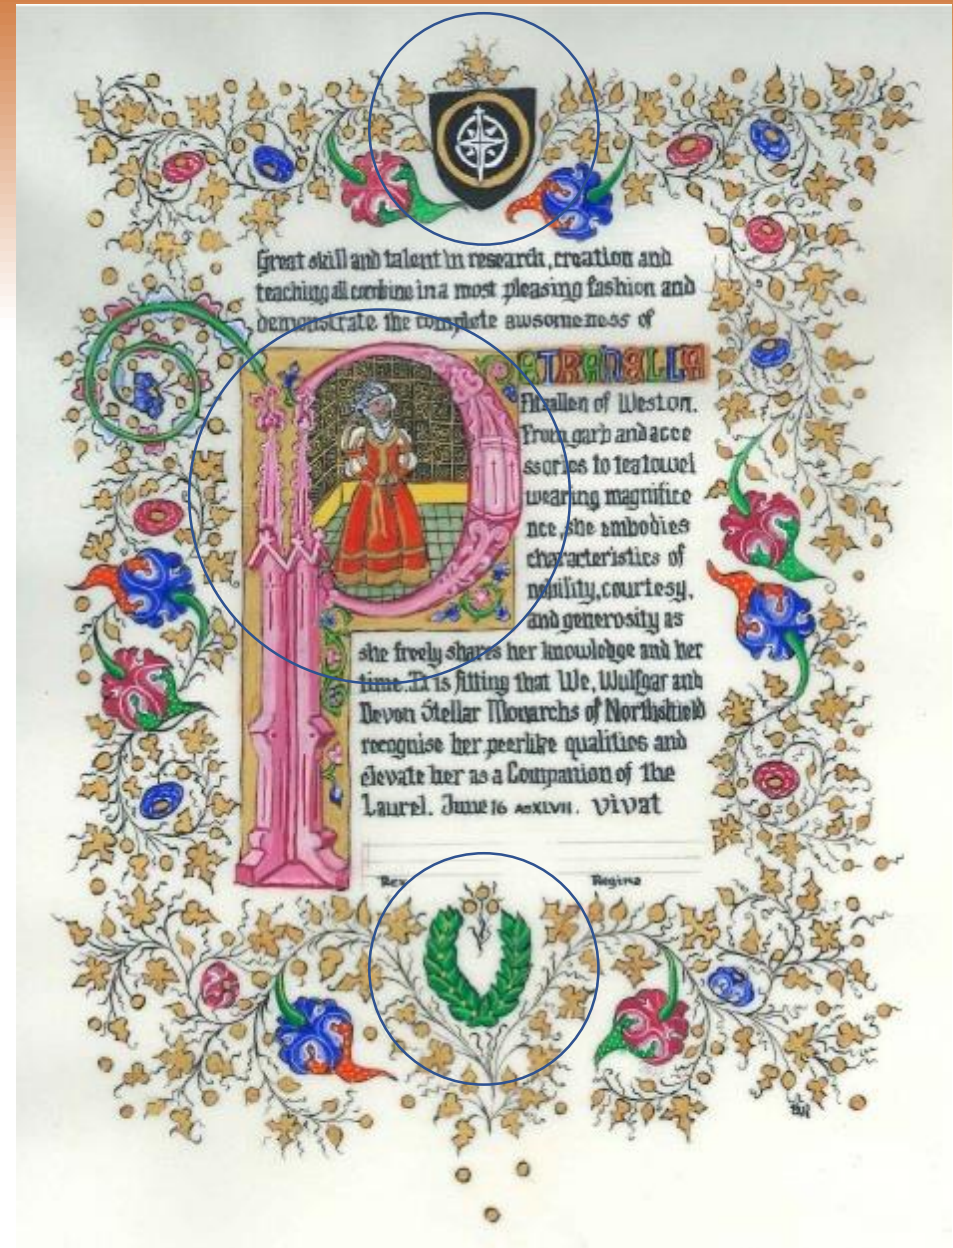 Great skill and talent in research, creation and
teaching all combine in a most pleasing fashion and
demonstrate the complete awsomeness of
PETRANELLA
Fitzallen of Weston.
From garb and acce
ssories to teatowel
wearing magnifice
nce, she embodies
characteristics of
nobility, courtesy,
and generosity as
she freely shares her knowledge and her
time. It is fitting that We, Wulfgar and
Devon Stellar Monarchs of Northshield
recognise her peerlike qualities and
elevate her as a Companion of the
Laurel. June 16 AoXLVII. vivat
Rex Regina